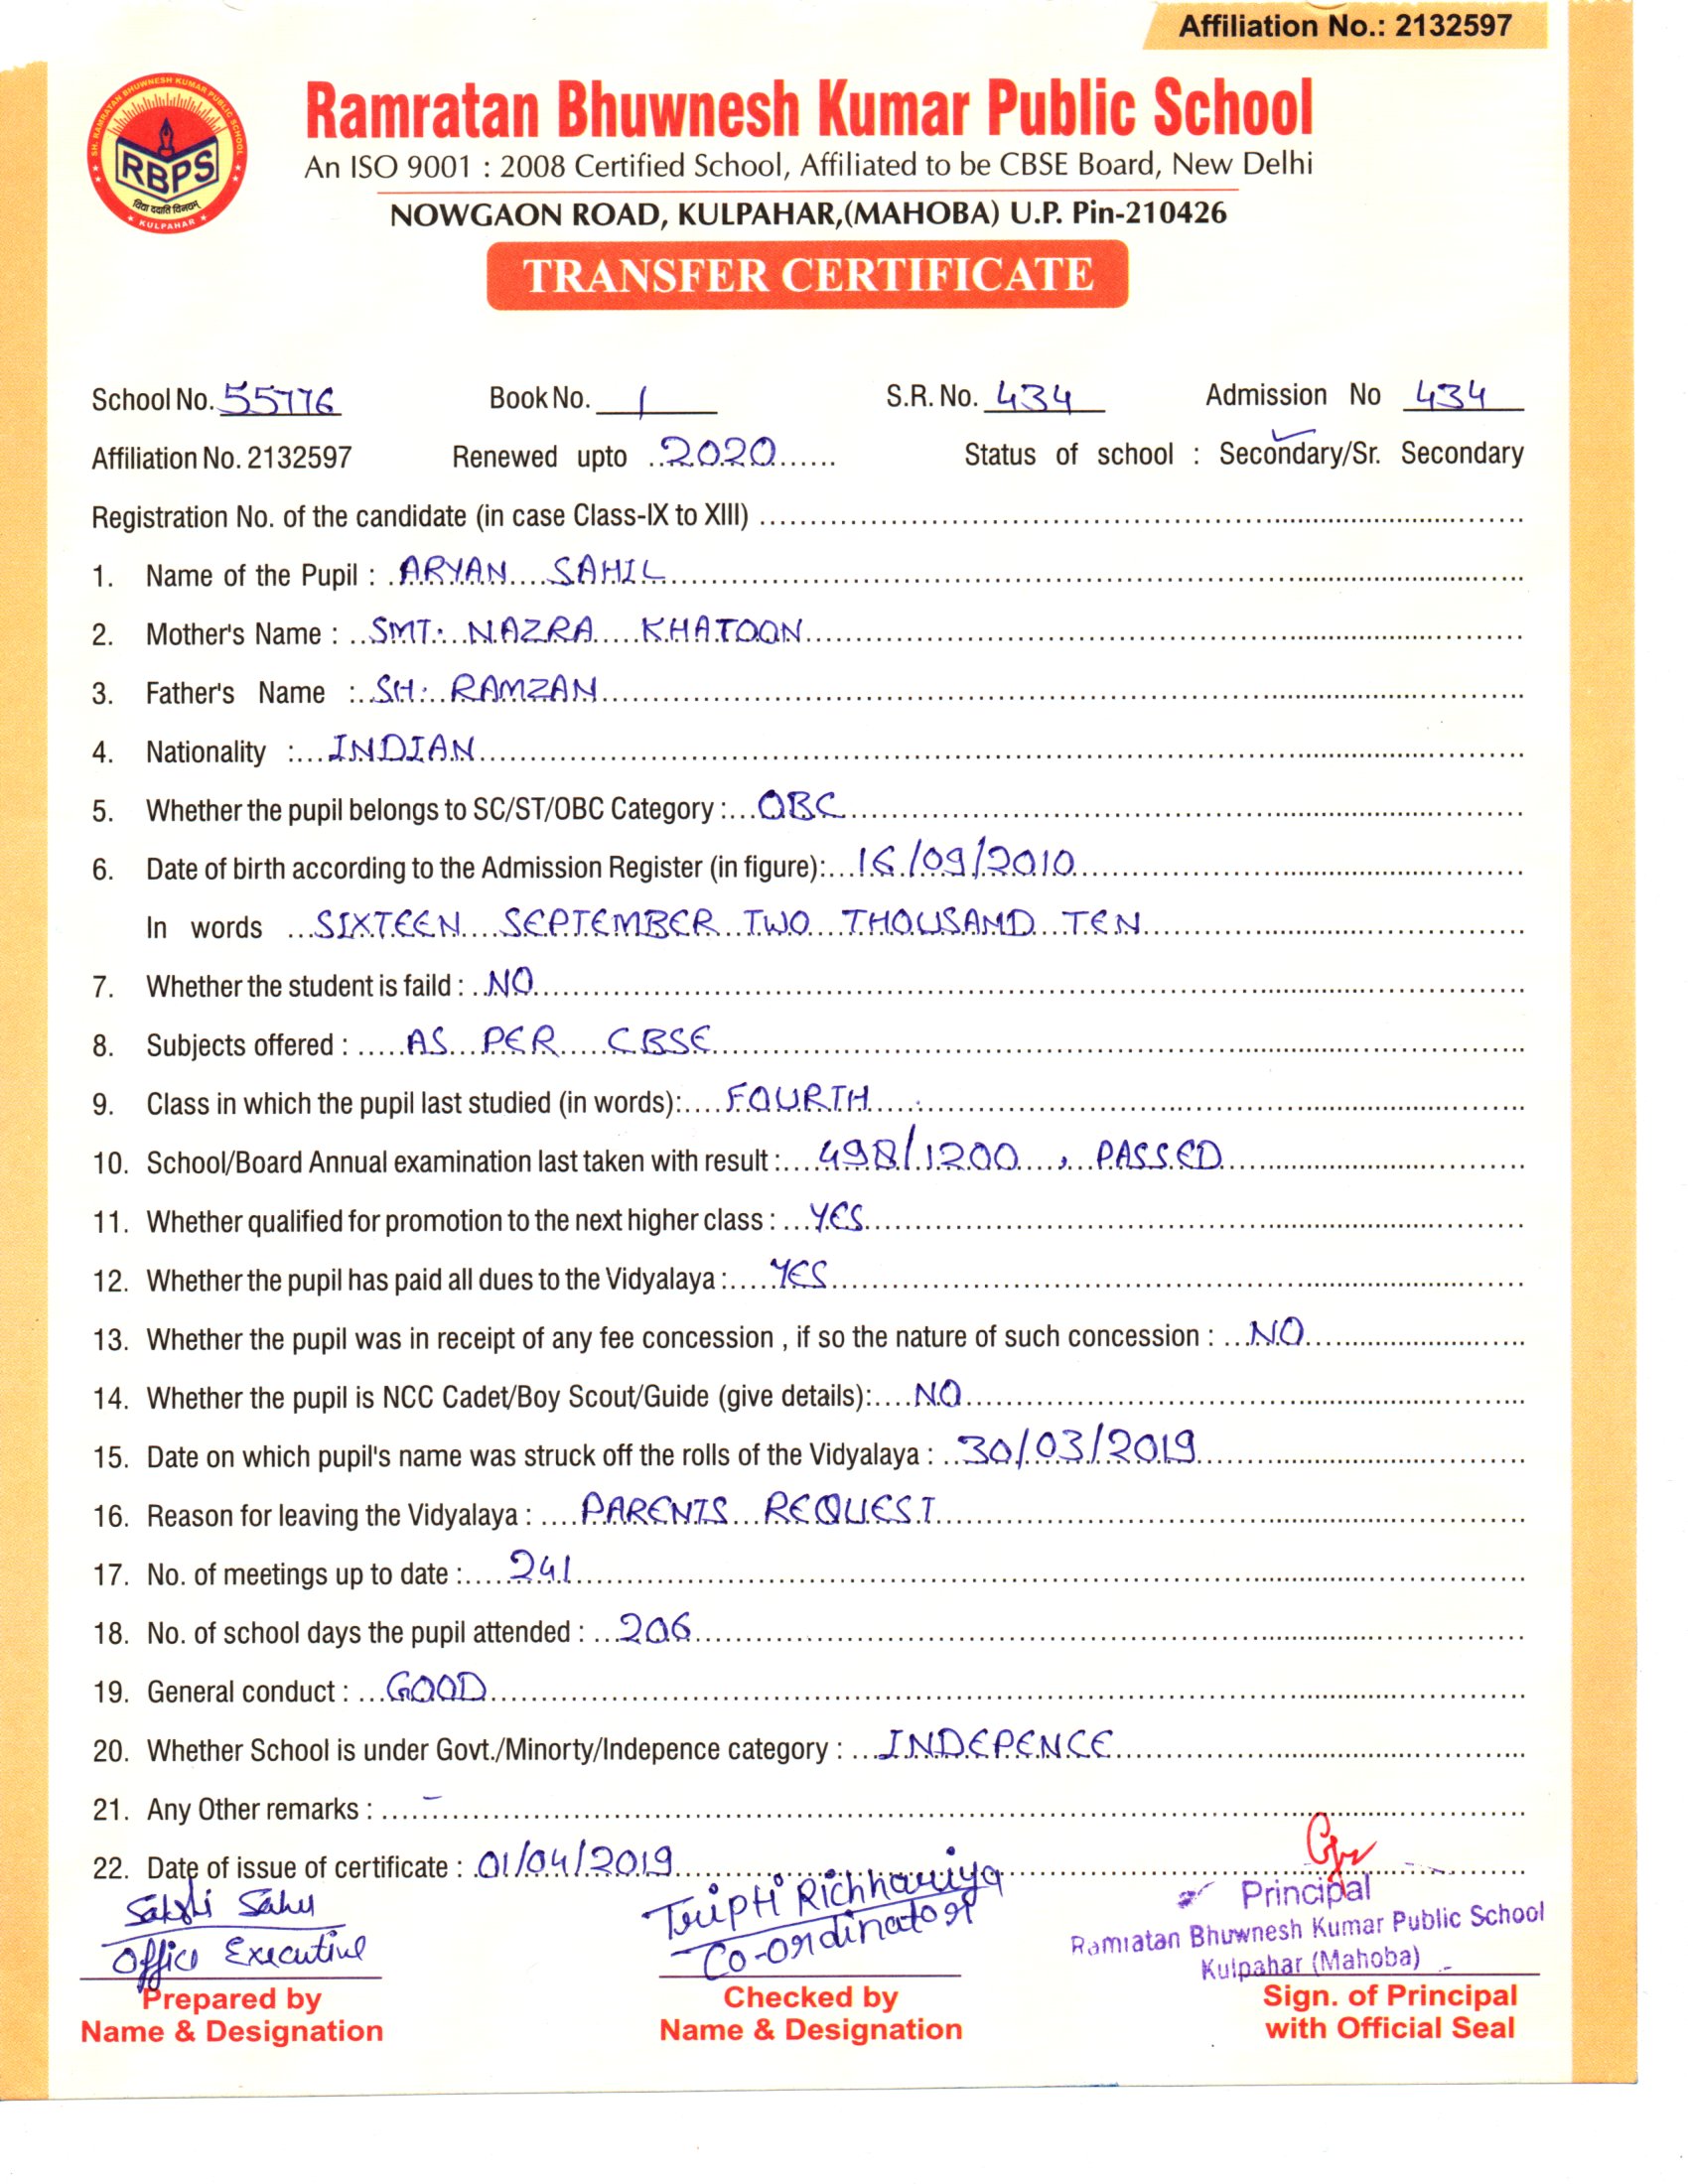 Affiliation No.: 2132597
SH. RAMRATAN BHUWNESH KUMAR PUBLIC SCHOOL
RBPS
विद्या ददाति विनयम्
KULPAHAR
Ramratan Bhuwnesh Kumar Public School
An ISO 9001 : 2008 Certified School, Affiliated to be CBSE Board, New Delhi
NOWGAON ROAD, KULPAHAR,(MAHOBA) U.P. Pin-210426
TRANSFER CERTIFICATE
School No. 55776 Book No. 1 S.R. No. 434 Admission No 434
Affiliation No. 2132597 Renewed upto 2020 Status of school : Secondary/Sr. Secondary
Registration No. of the candidate (in case Class-IX to XIII)
1. Name of the Pupil : ARYAN SAHIL
2. Mother's Name : SMT. NAZRA KHATOON
3. Father's Name : SH. RAMZAN
4. Nationality : INDIAN
5. Whether the pupil belongs to SC/ST/OBC Category : OBC
6. Date of birth according to the Admission Register (in figure): 16/09/2010
In words SIXTEEN SEPTEMBER TWO THOUSAND TEN
7. Whether the student is faild : NO
8. Subjects offered : AS PER CBSE
9. Class in which the pupil last studied (in words): FOURTH
10. School/Board Annual examination last taken with result : 498/1200, PASSED
11. Whether qualified for promotion to the next higher class : YES
12. Whether the pupil has paid all dues to the Vidyalaya : YES
13. Whether the pupil was in receipt of any fee concession , if so the nature of such concession : NO
14. Whether the pupil is NCC Cadet/Boy Scout/Guide (give details): NO
15. Date on which pupil's name was struck off the rolls of the Vidyalaya : 30/03/2019
16. Reason for leaving the Vidyalaya : PARENTS REQUEST
17. No. of meetings up to date : 241
18. No. of school days the pupil attended : 206
19. General conduct : GOOD
20. Whether School is under Govt./Minorty/Indepence category : INDEPENCE
21. Any Other remarks : -
22. Date of issue of certificate : 01/04/2019
Sakshi Sahu Tripti Richhariya Principal
Office Executive Co-ordinator Ramratan Bhuwnesh Kumar Public School
Kulpahar (Mahoba)
Prepared by Checked by Sign. of Principal
Name & Designation Name & Designation with Official Seal